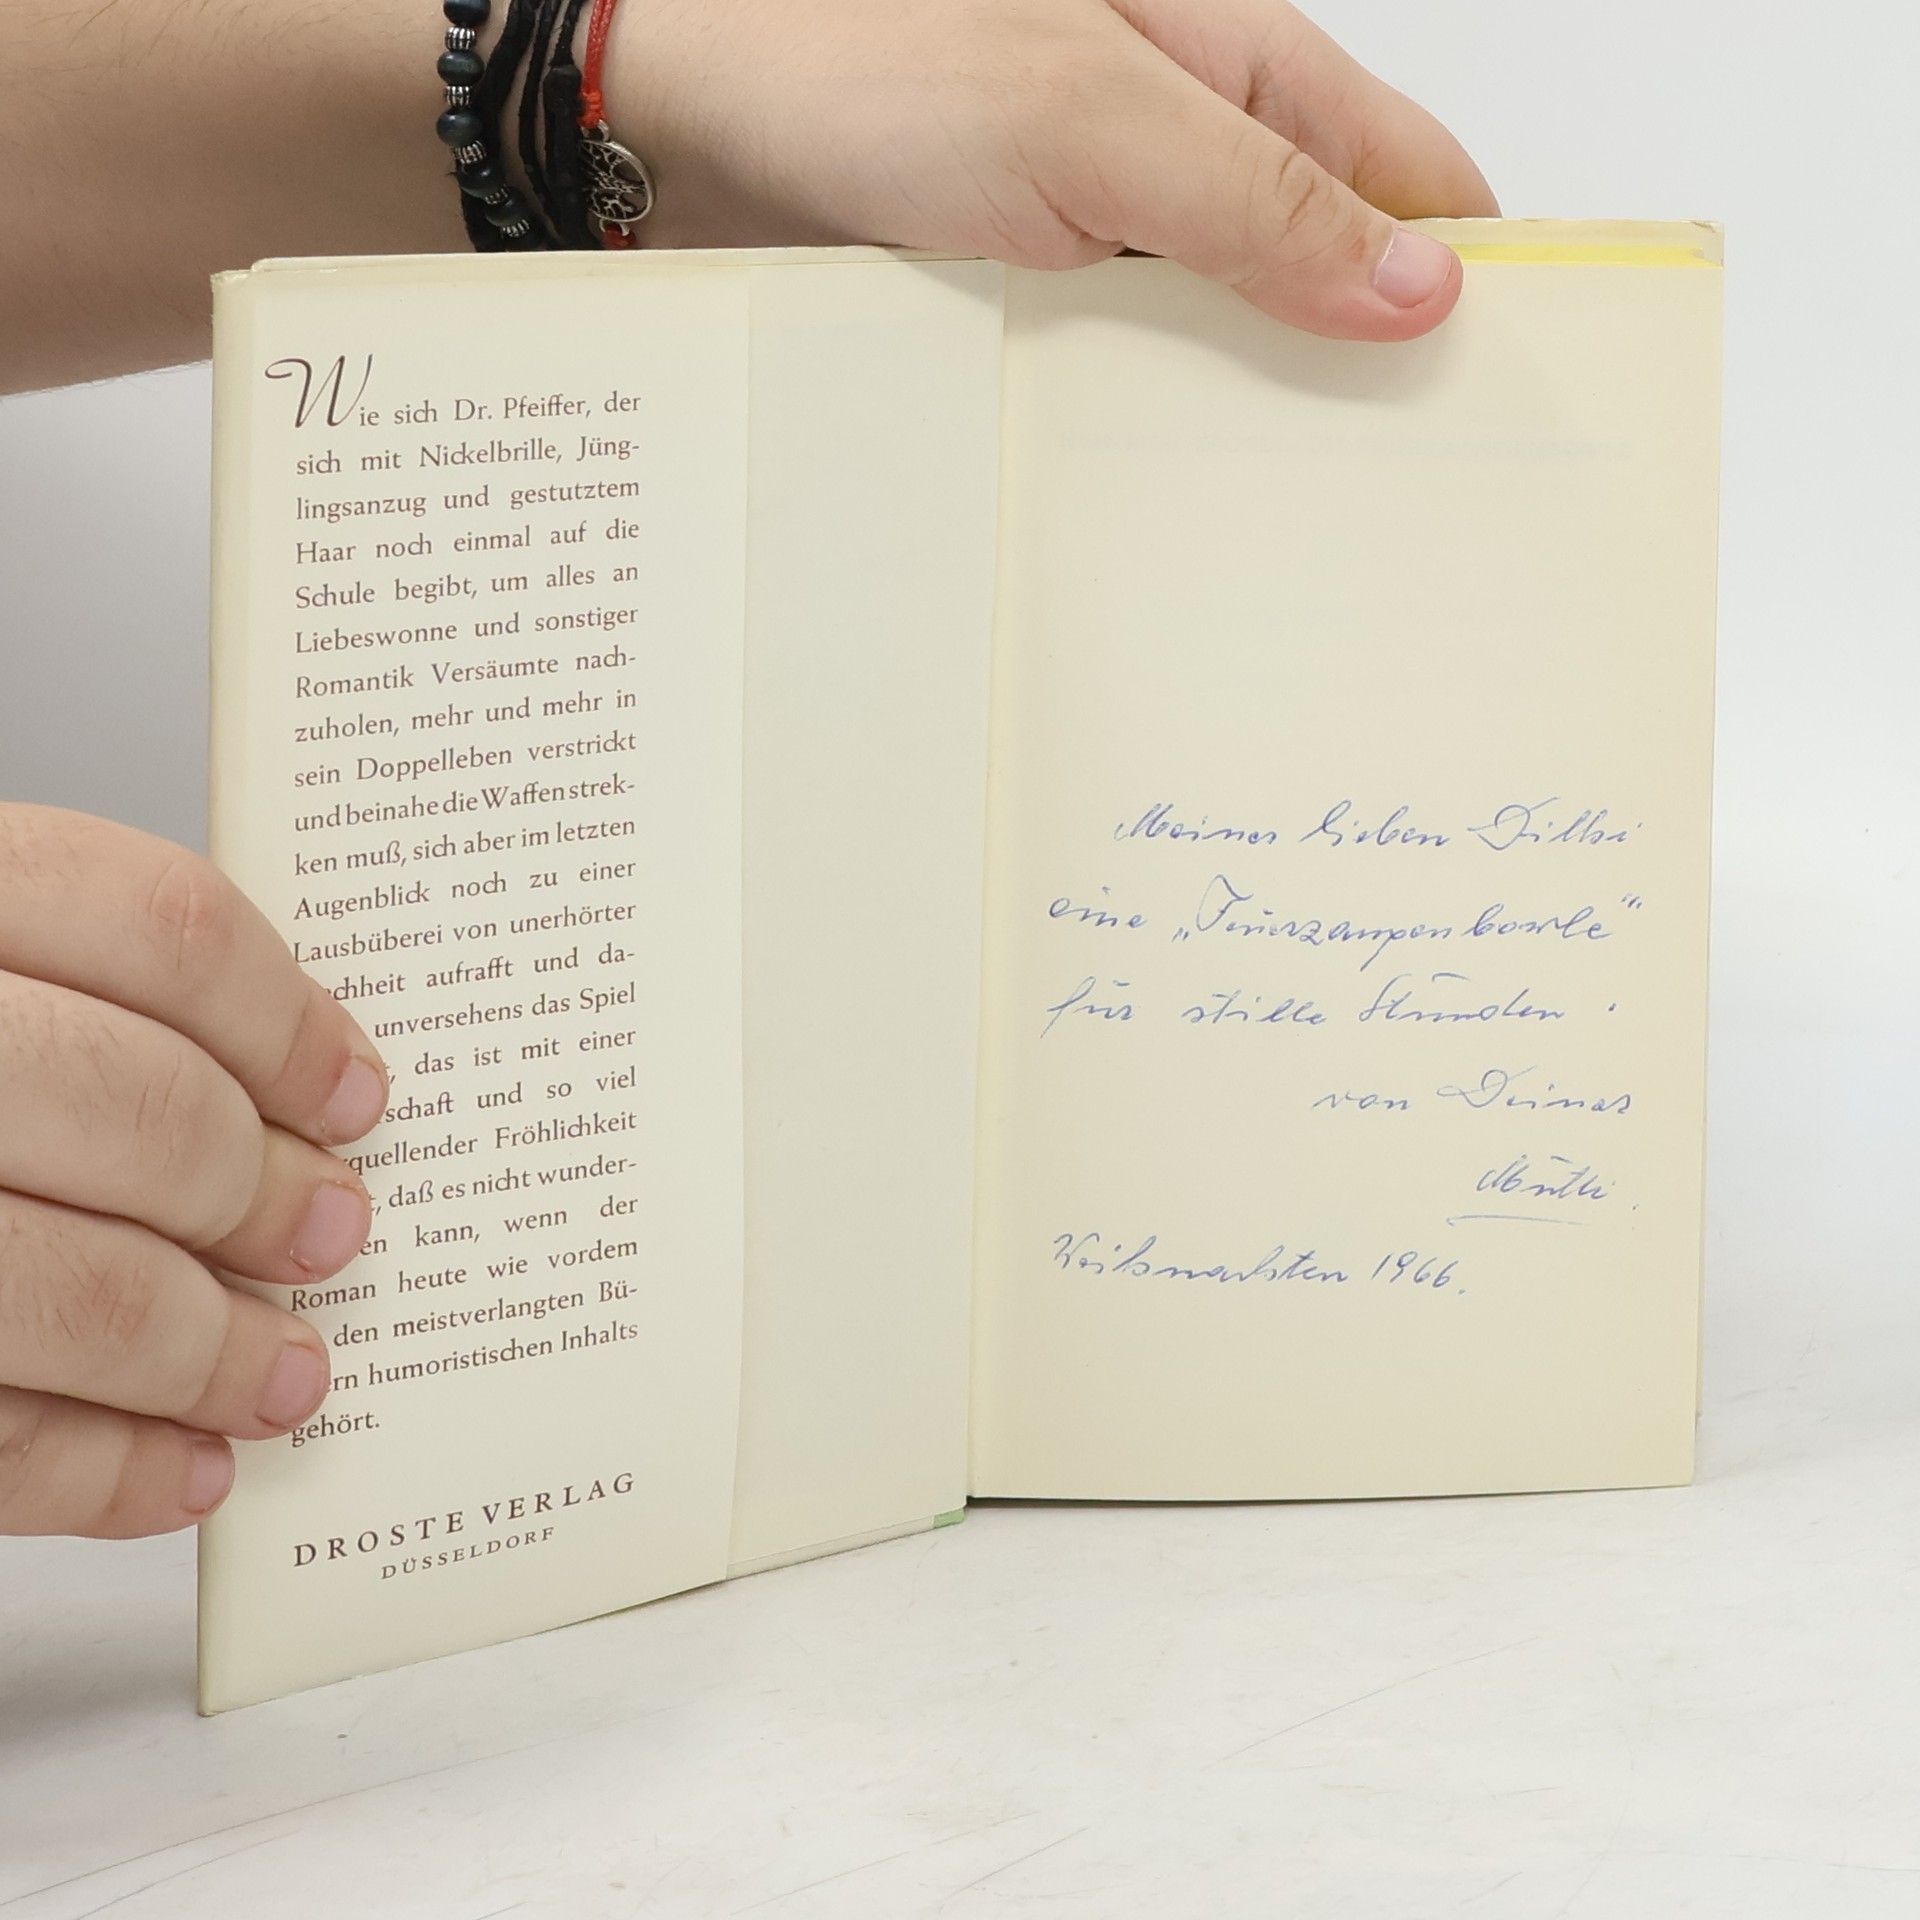 Wie sich Dr. Pfeiffer, der
sich mit Nickelbrille, Jüng-
lingsanzug und gestutztem
Haar noch einmal auf die
Schule begibt, um alles an
Liebeswonne und sonstiger
Romantik Versäumte nach-
zuholen, mehr und mehr in
sein Doppelleben verstrickt
und beinahe die Waffen strek-
ken muß, sich aber im letzten
Augenblick noch zu einer
Lausbüberei von unerhörter
chheit aufrafft und da-
unversehens das Spiel
, das ist mit einer
schaft und so viel
quellender Fröhlichkeit
t, daß es nicht wunder-
en kann, wenn der
Roman heute wie vordem
den meistverlangten Bü-
ern humoristischen Inhalts
gehört.
DROSTE VERLAG
DÜSSELDORF
Meiner lieben
eine „Feuerzangenbowle“
für stille Stunden.
von Deiner
Mutti.
Weihnachten 1966.